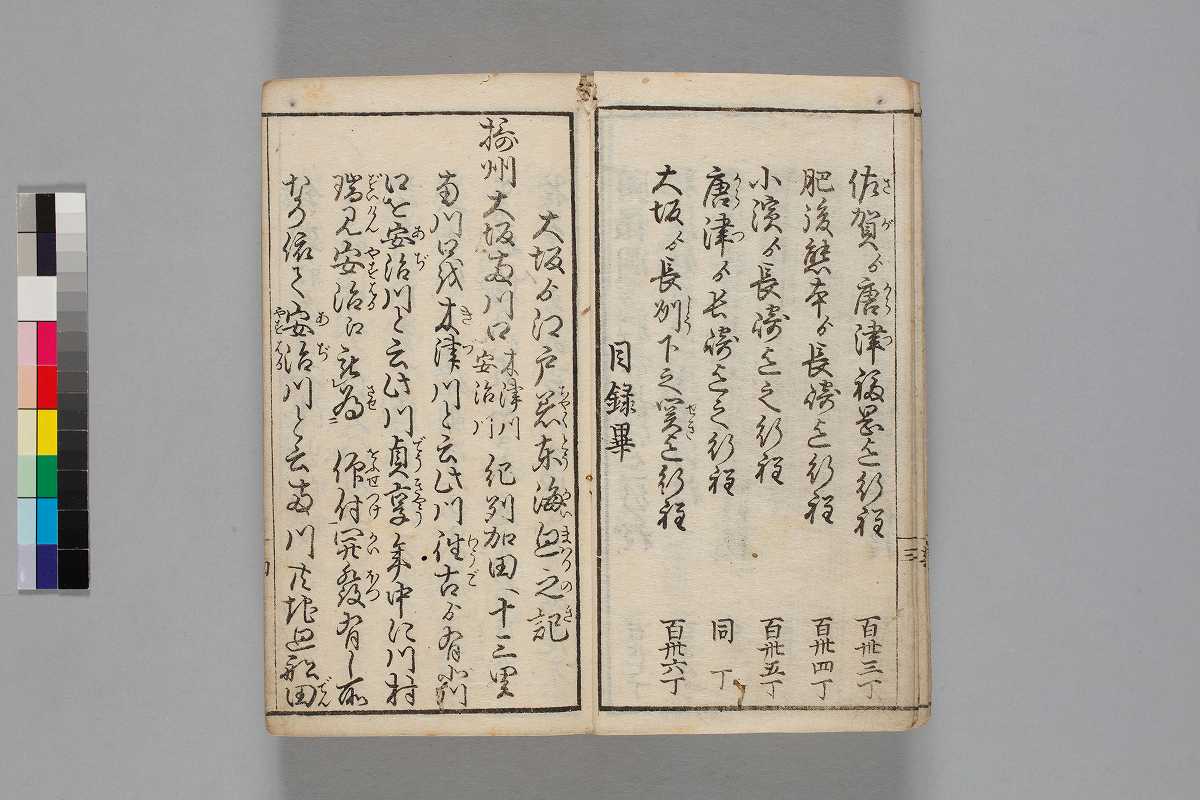 佐賀ゟ唐津福岡迄行程 百丗三丁
肥後熊本ゟ長崎迄行程 百丗四丁
小濱ゟ長崎迄之行程 百丗五丁
唐津ゟ長崎迄之行程 同 丁
大坂ゟ長州下之関迄行程 百丗六丁
目録畢
大坂ゟ江戸着東海廻之記
摂州大坂両川口 木津川 安治川 紀州加田へ十三里
両川口我木津川と云此川往古ゟ有
江を安治川と云此川貞享年中に川村
瑞見安治江 為 仰付開発有し所
なり依て安治川と云両川共地廻船田